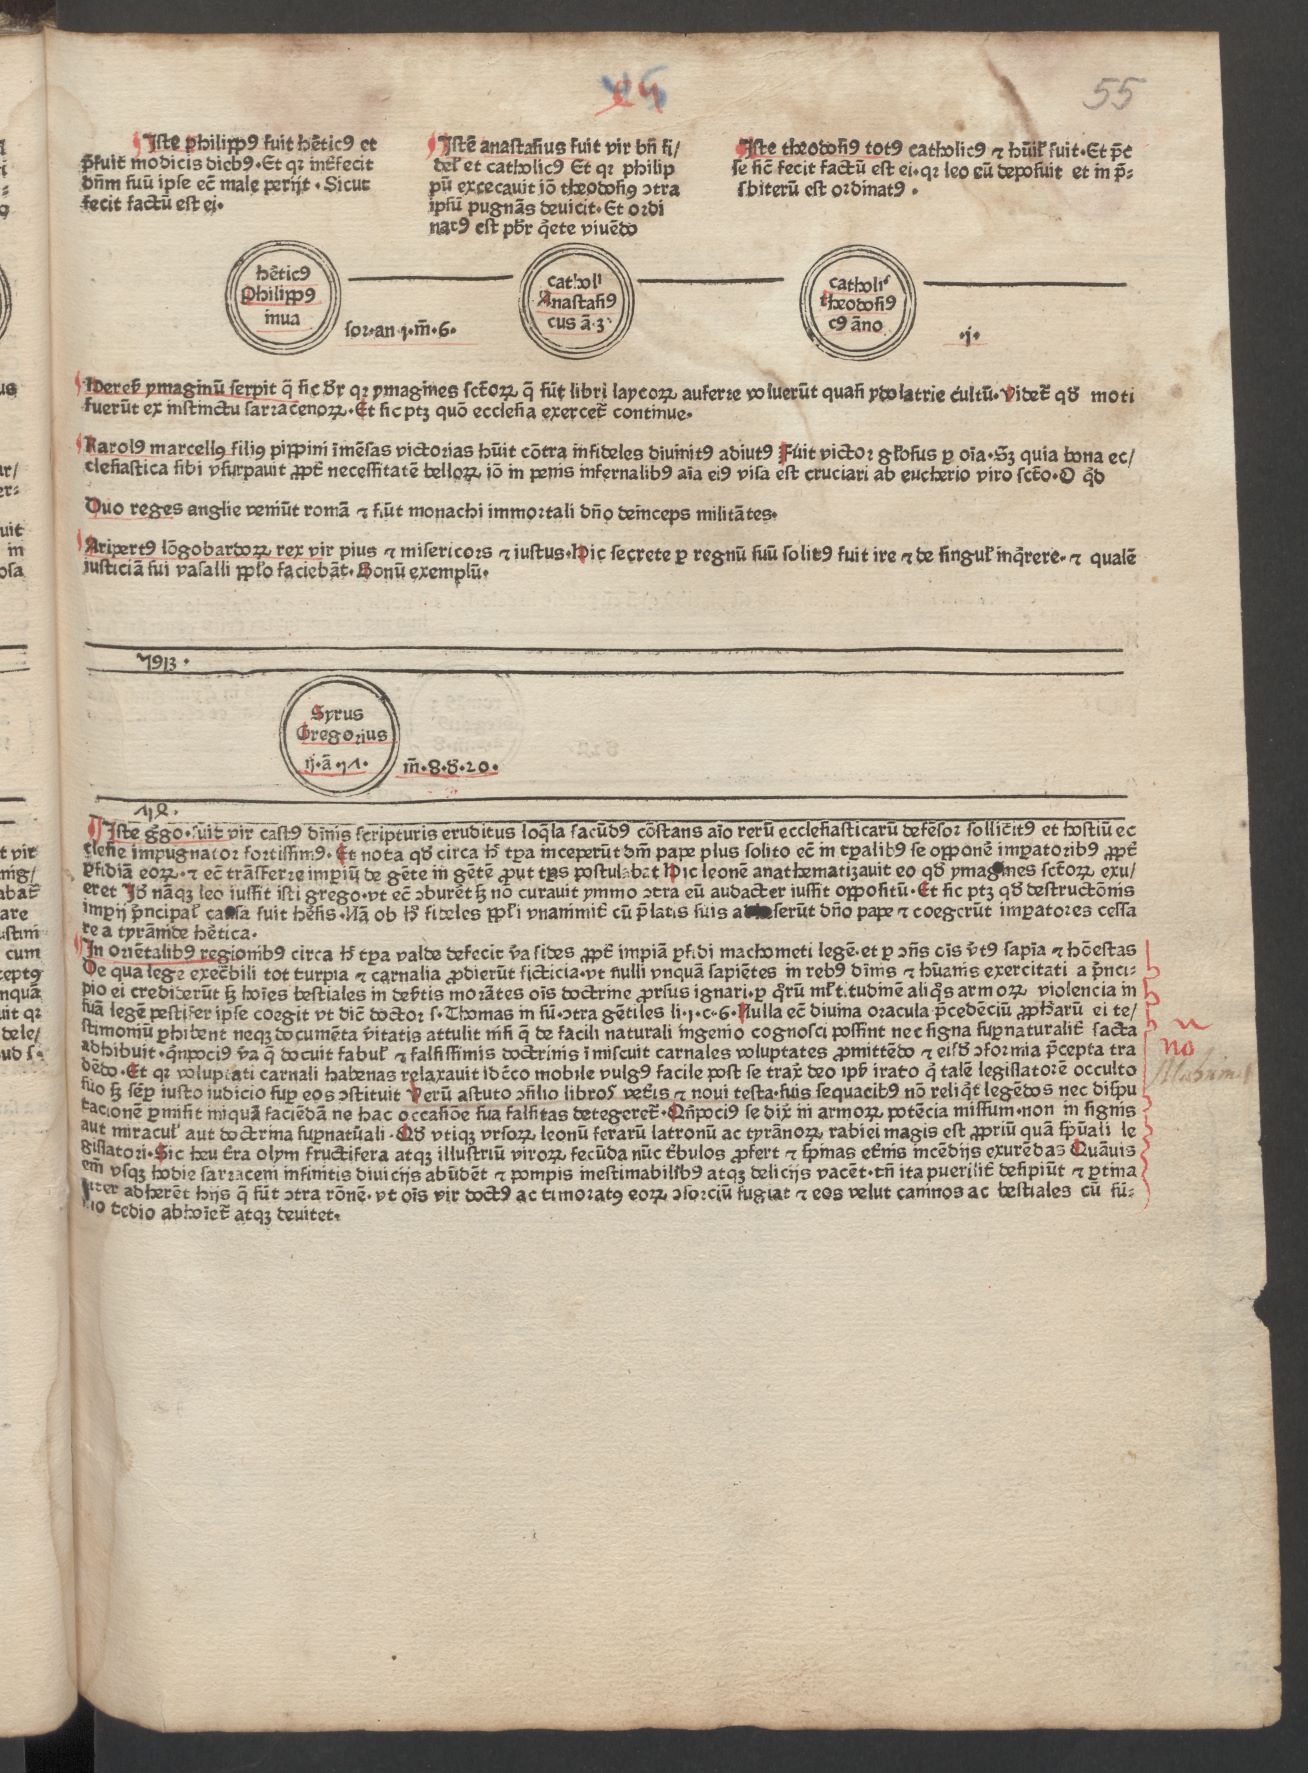 55
Iste philippꝰ fuit hēticꝰ et
p̄fuit modicis diebꝰ. Et qꝛ intˀfecit
dn̄m suū ipse ec̄ male perijt. Sicut
fecit factū est ei.
Iste anastasius fuit vir bn̄ fi/
del' et catholicꝰ Et qꝛ philip
pū excecauit iō theodosiꝰ ɔtra
ipsū pugnās deuicit. Et ordi
natꝰ est pbr̄ q̄ete viuēdo
Iste theodosiꝰ totꝰ catholicꝰ ⁊ hūil' fuit. Et p̄t
se sic̄ fecit factū est ei. qꝛ leo eū deposuit et in p̄-
sbiterū est ordinatꝰ.
hēticꝰ
Philippꝰ
inua
sor. an 1. m̄. 6.
catholi
Anastasiꝰ
cus ā. 3
catholi
theodosiꝰ
cꝰ āno
.j.
Heres' ymaginū serpit q̄ sic dr̄ qꝛ ymagines sctōꝝ q̄ sūt libri laycoꝝ auferre voluerūt quasi ydolatrie cultū. Videt' qd' moti
fuerūt ex instinctu sarracenoꝝ. Et sic ptꝫ quō ecclesia exercet' continue.
Karolꝰ marcellꝰ filiꝰ pippini īmēsas victorias hūit cōtra infideles diuinitꝰ adiutꝰ Fuit victor gl'osus ꝑ oīa. Sꝫ quia bona ec/
clesiastica sibi vsurpauit ꝓpt' necessitatē belloꝝ iō in penis infernalibꝰ aīa eiꝰ visa est cruciari ab eucherio viro sctō. O q̄d
Duo reges anglie veniūt romā ⁊ fiūt monachi immortali dn̄o deinceps militātes.
Aripertꝰ lōgobardoꝝ rex vir pius ⁊ misericors ⁊ iustus. Hic secrete ꝑ regnū suū solitꝰ fuit ire ⁊ de singul' inq̄rere. ⁊ qualē
iusticiā sui vasalli ꝓpl'o faciebāt. Bonū exemplū.
4913.
Syrus
Gregorius
ij. ā. 14.
m̄. 8. d'. 20.
Iste g̊go. fuit vir castꝰ diuinis scripturis eruditus loq̄la facūdꝰ cōstans aīo rerū ecclesiasticarū defēsor sollicitꝰ et hostiū ec
clesie impugnator fortissimꝰ. Et nota qd' circa h' tꝑa inceperūt dn̄i pape plus solito ec̄ in tꝑalibꝰ se opponē impatoribꝰ ꝓpt'
ꝑfidiā eoꝝ. ⁊ ec̄ trāsferre imꝑiū de gēte in gētē ꝓut tꝑs postulabat Hic leonē anathematizauit eo qd' ymagines sctōꝝ exu/
eret Id' nāqꝫ leo iussit isti grego. vt ec̄ ɔburēt sꝫ nō curauit ymmo ɔtra eū audacter iussit oppositū. Et sic ptꝫ qd' destructōnis
imꝑij p̄ncipal' causa fuit hēsis. Nā ob h' fideles ꝓpl'i vnanimit' cū p̄latis suis adheserūt dn̄o pape ⁊ coegerūt imꝑatores cessa
re a tyrānide hētica.
In oriētalibꝰ regionibꝰ circa h' tꝑa valde defecit v̄a fides ꝓpt' impiā ꝑfidi machometi legē. et ꝑ ɔn̄s oīs v̄tꝰ sapīa ⁊ hōestas
De qua lege execrabili tot turpia ⁊ carnalia ꝓdierūt ficticia. vt nulli vnquā sapiētes in rebꝰ diuinis ⁊ hūanis exercitati a p̄nci-
pio ei crediderūt sꝫ hoīes bestiales in desertis morātes oīs doctrine ꝓrsus ignari. ꝑ q̄rū ml'titudinē aliq̄s armoꝝ violencia in
suā legē pestifer ipse coegit vt dic̄ doctor s. Thomas in sū. ɔtra gētiles li. 1. c. 6. Nulla ec̄ diuina oracula p̄cedēciū ꝓph'arū ei te/
stimoniū ꝑhibent neqꝫ documēta v̄itatis attulit nisi q̄ de facili naturali ingenio cognosci possint nec signa suꝑnaturalit' facta
adhibuit. q̄npociꝰ v̄a q̄ docuit fabul' ⁊ falsissimis doctrinis īmiscuit carnales voluptates ꝓmittēdo ⁊ eisd' ɔformia p̄cepta tra
dēdo. Et qꝛ voluptati carnali habenas relaxauit idēco mobile vulgꝰ facile post se trax' deo ip'is irato q̄ talē legislatorē occulto
suo sꝫ sēꝑ iusto iudicio suꝑ eos ɔstituit Verū astuto ɔsilio libros vet'is ⁊ noui testa. suis sequacibꝰ nō reliq̄t legēdos nec dispu
tacionē ꝑmisit iniquā faciēdā ne hac occasiōe sua falsitas detegeret'. Qn̄pociꝰ se dix' in armoꝝ potēcia missum. non in signis
aut miracul' aut doctrina suꝑnatūali. Qd' vtiqꝫ vrsoꝝ leonū ferarū latronū ac tyrānoꝝ rabiei magis est ꝓpriū quā sp̄uali le
gislatori. Sic heu t'ra olym fructifera atqꝫ illustriū viroꝝ fecūda nūc t'bulos ꝓfert ⁊ sp̄mas et'nis incēdijs exurēdas Quāuis
em̄ vsqꝫ hodie sarraceni infinitis diuicijs abūdēt ⁊ pompis inestimabilibꝰ atqꝫ delicijs vacēt. tn̄ ita puerilit' desipiūt ⁊ ꝑtina
citer adherēt hijs q̄ sūt ɔtra rōnē. vt oīs vir doctꝰ ac timoratꝰ eoꝝ ɔsorciū fugiat ⁊ eos velut caninos ac bestiales cū sū-
mo tedio abhoīet' atqꝫ deuitet.
no